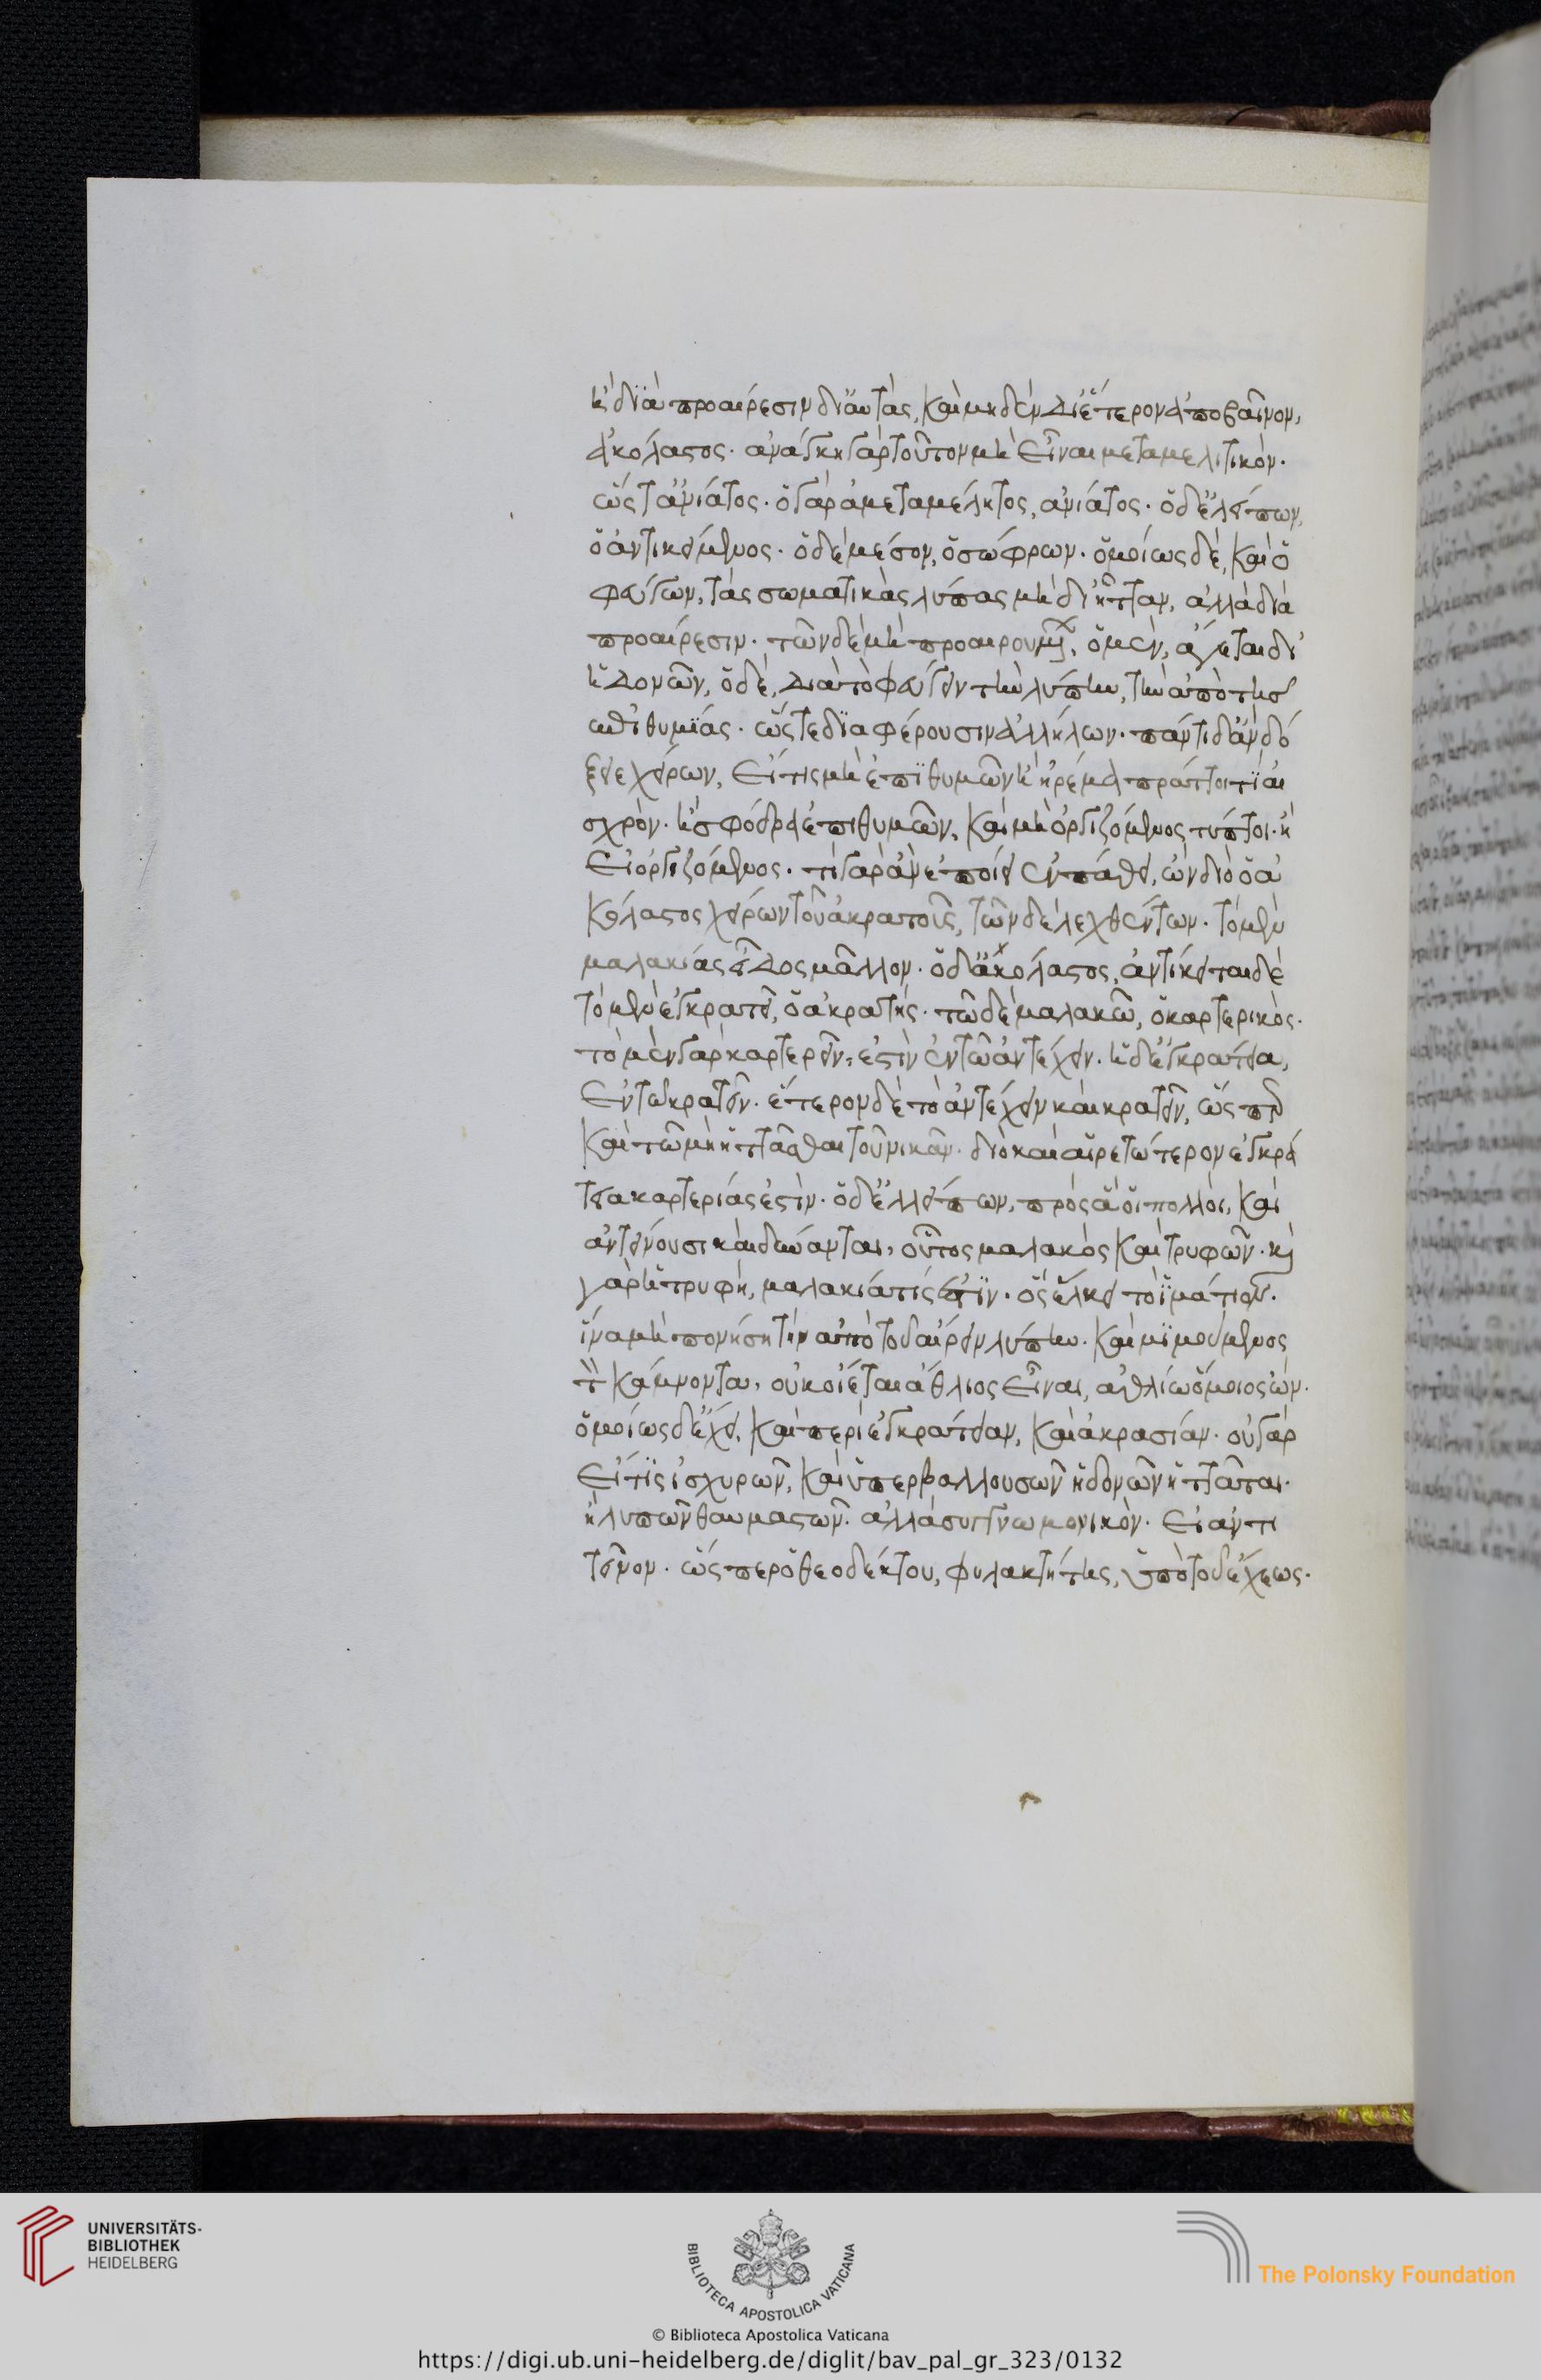 ἢ διὰ προαίρεσιν δι' αὐτὰς, καὶ μηδὲν δι' ἕτερον ἀποβαῖνον,
ἀκόλαστος. ἀνάγκη γὰρ τοῦτον μὴ εἶναι μεταμελιτικόν.
ὥστ' ἀνίατος. ὁ γὰρ ἀμεταμέλητος, ἀνίατος. ὁ δ' ἐλείπων,
ὁ ἀντικείμενος. ὁ δὲ μέσον, ὁ σώφρων. ὁμοίως δὲ, καὶ ὁ
φεύγων, τὰς σωματικὰς λύπας μὴ δι' ἧτταν, ἀλλὰ διὰ
προαίρεσιν. τῶν δὲ μὴ προαιρουμένων, ὁ μὲν, ἄγεται δι'
ἡδονῶν, ὁ δὲ, διὰ τὸ φεύγειν τὴν λύπην, τὴν ἀπὸ τῆς
ἐπιθυμίας. ὥστε διαφέρουσιν ἀλλήλων. παντὶ δ' ἂν δό
ξειε χείρων, εἴ τις μὴ ἐπιθυμῶν ἢ ἠρέμα πράττοι τι αἰ
σχρόν. ἢ σφόδρα ἐπιθυμῶν, καὶ μὴ ὀργιζόμενος τύπτοι. ἢ
εἰ ὀργιζόμενος. τί γὰρ ἂν ἐποίει ἐν πάθει, ὢν διὸ ὁ ἀ
κόλαστος χείρων τοῦ ἀκρατοῦς, τῶν δὲ λεχθέντων. τὸ μὲν
μαλακίας εἶδος μᾶλλον. ὁ δ' ἀκόλαστος, ἀντίκειται δὲ
τὸ μὲν ἐγκρατεῖ, ὁ ἀκρατής. τῶ δὲ μαλακῶ, ὁ καρτερικός.
τὸ μὲν γὰρ καρτερεῖν, ἐστὶν ἐν τῶ ἀντέχειν. ἡ δ' ἐγκράτεια,
ἐν τῶ κρατεῖν. ἕτερον δὲ τὸ ἀντέχειν καὶ κρατεῖν, ὥσπερ
καὶ τῶ μὴ ἡττᾶσθαι τοῦ νικᾶν. διὸ καὶ αἱρετώτερον ἐγκρά
τεια καρτερίας ἐστίν. ὁ δ' ἐλλείπων, πρὸς ἃ οἱ πολλοὶ, καὶ
ἀντιτείνουσι καὶ δύνανται, οὗτος μαλακὸς καὶ τρυφῶν. καὶ
γὰρ ἡ τρυφὴ, μαλακία τίς ἐστιν. ὃς ἕλκει τὸ ἱμάτιον.
ἵνα μὴ πονήση τὴν ἀπὸ τοῦ αἴρειν λύπην. καὶ μιμούμενος
τὸν κάμνοντα, οὐκ οἴεται ἄθλιος εἶναι, ἀθλίω ὅμοιος ὤν.
ὁμοίως δ' ἔχει, καὶ περὶ ἐγκράτειαν, καὶ ἀκρασίαν. οὐ γὰρ
εἴ τις ἰσχυρῶν, καὶ ὑπερβαλλουσῶν ἡδονῶν ἡττᾶται.
ἢ λυπῶν θαυμαστῶν. ἀλλὰ συγγνωμονικόν. εἰ ἀντι
τεῖνον. ὥσπερ ὁ θεοδέκτου, φυλακτήτης, ὑπὸ τοῦ ἔχεως.
UNIVERSITÄTS-
BIBLIOTHEK
HEIDELBERG
BIBLIOTECA APOSTOLICA VATICANA
The Polonsky Foundation
© Biblioteca Apostolica Vaticana
https://digi.ub.uni-heidelberg.de/diglit/bav_pal_gr_323/0132